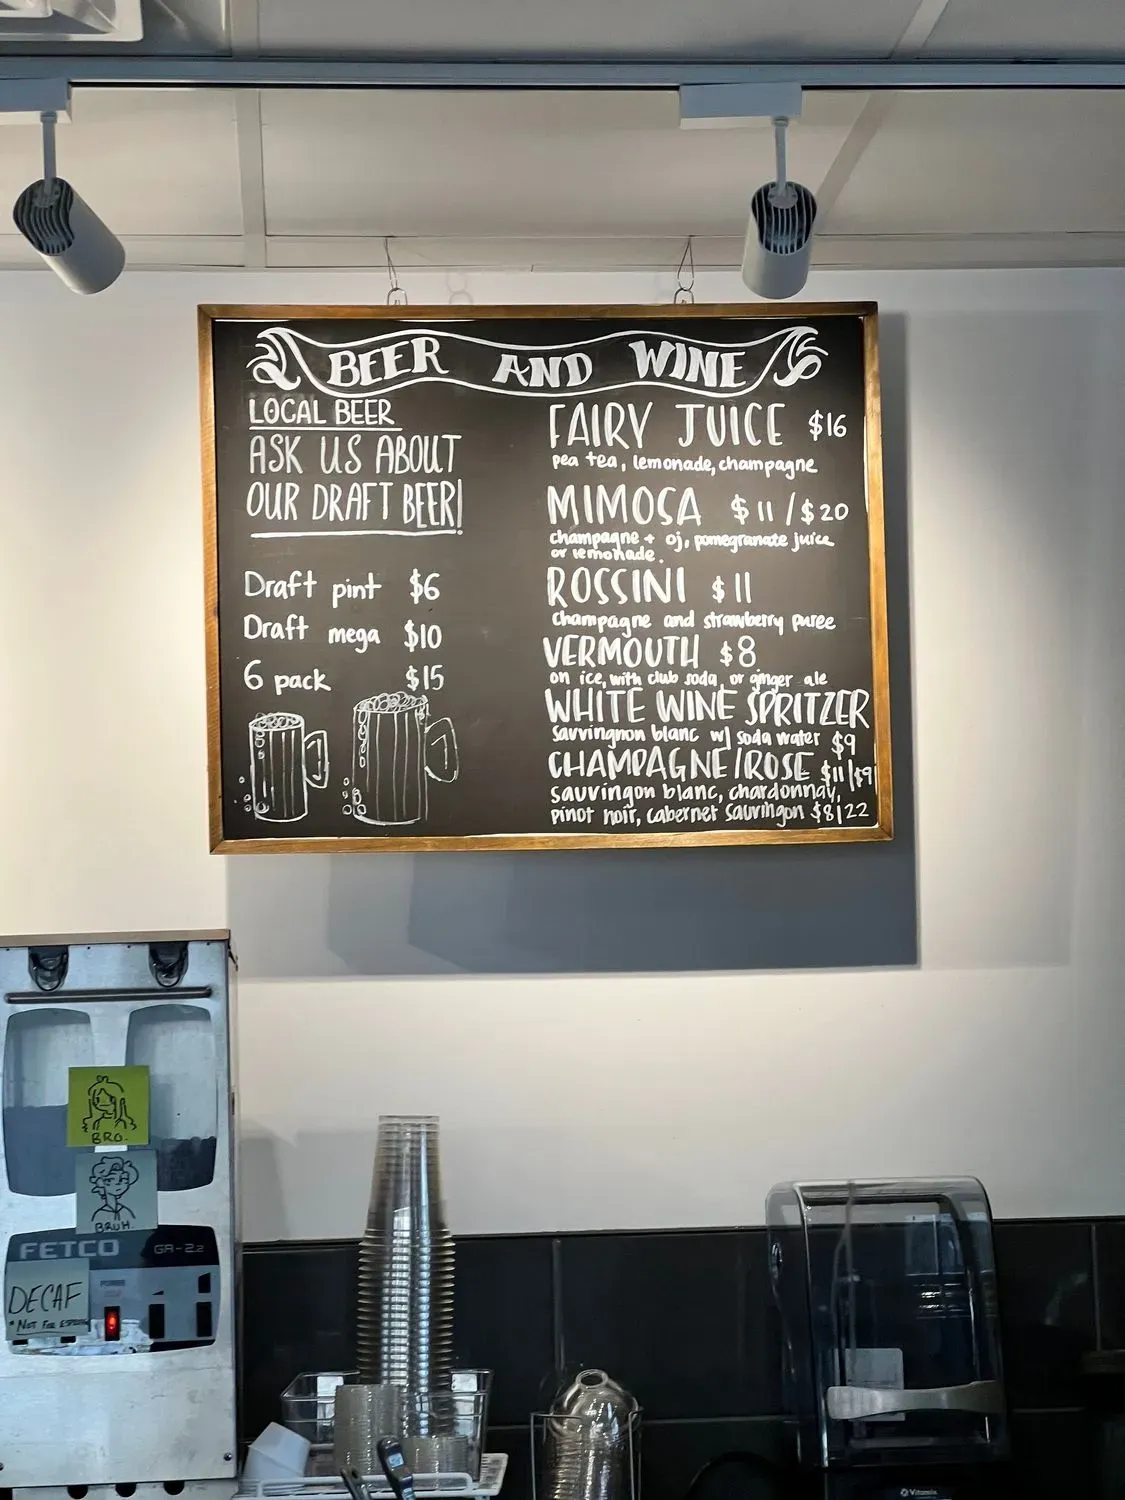 BEER AND WINE
LOCAL BEER
ASK US ABOUT
OUR DRAFT BEER!
Draft pint $6
Draft mega $10
6 pack $15
FAIRY JUICE $16
pea tea, lemonade, champagne
MIMOSA $11/$20
champagne + oj, pomegranate juice
or lemonade.
ROSSINI $11
Champagne and strawberry puree
VERMOUTH $8
on ice, with club soda, or ginger ale
WHITE WINE SPRITZER
Sauvingnon blanc w/ soda water $9
CHAMPAGNE/ROSE $11/$9
sauvingon blanc, chardonnay,
pinot noir, cabernet sauvingon $8/22
BRO.
BRUH.
FETCO GR-2.2
DECAF
*NOT FOR ESPRESSO
Vitamix